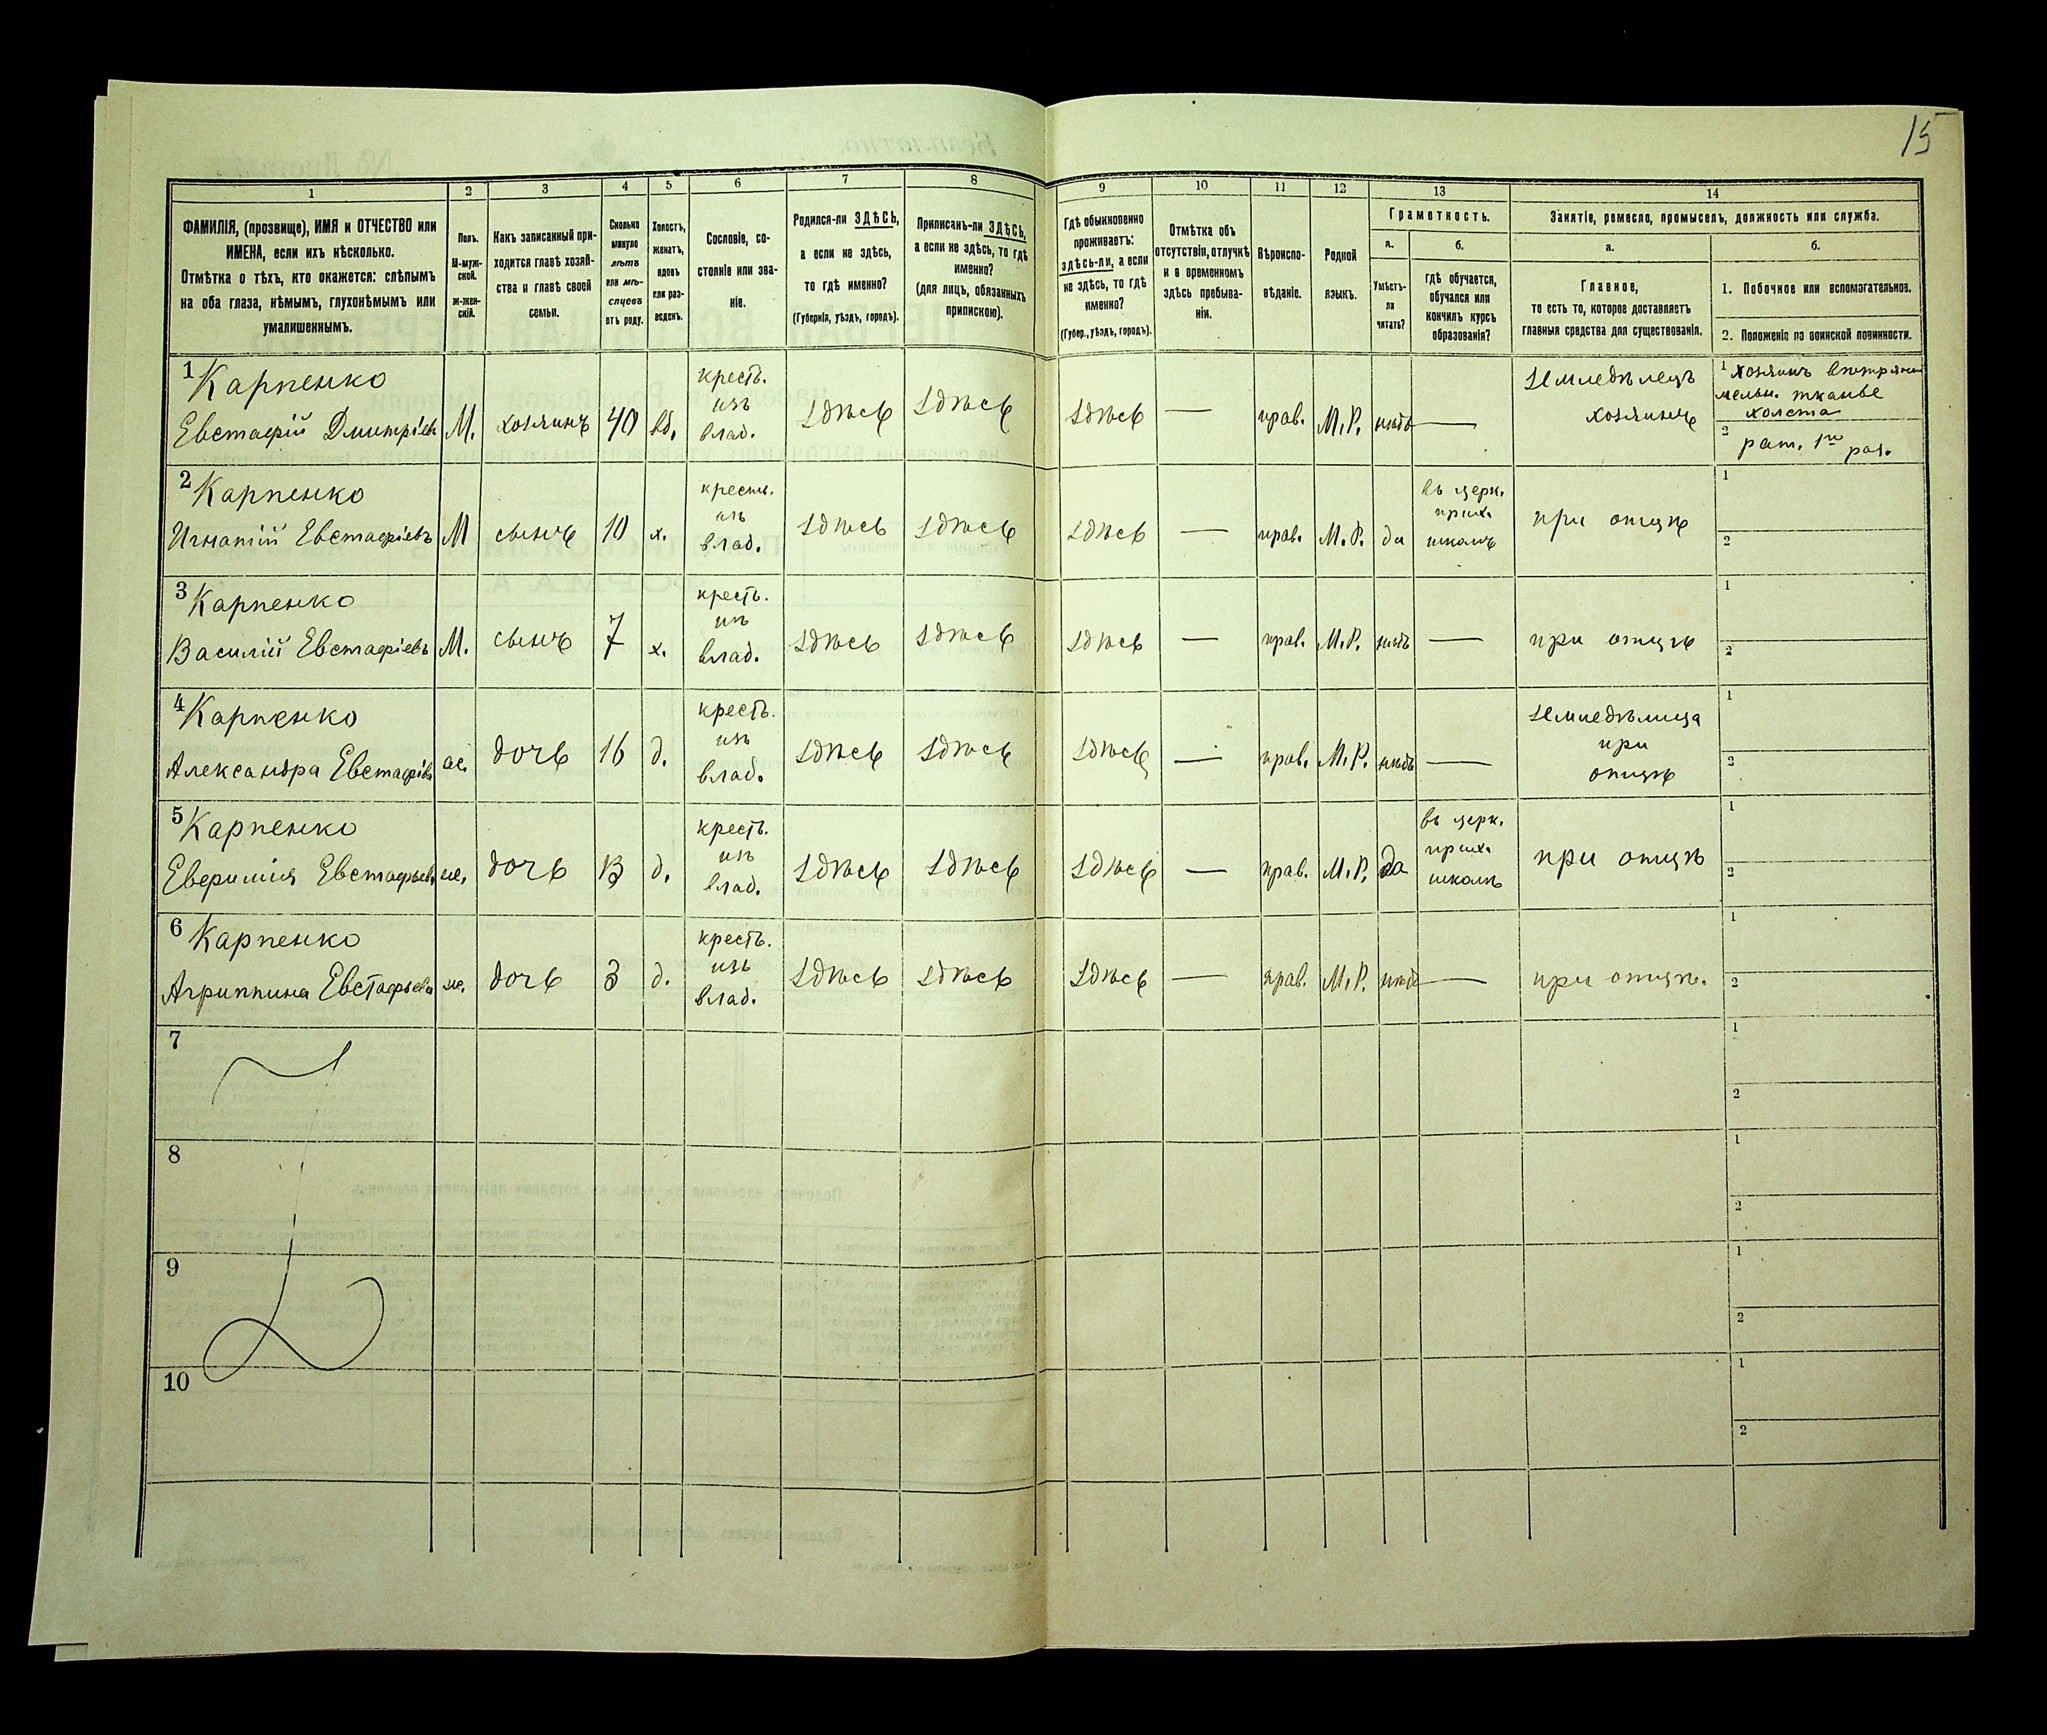 15
1
2
3
4
5
6
7
8
9
10
11
12
13
14
ФАМИЛІЯ, (прозвище), ИМЯ и ОТЧЕСТВО или
ИМЕНА, если ихъ нѣсколько.
Отмѣтка о тѣхъ, кто окажется: слѣпымъ
на оба глаза, нѣмымъ, глухонѣмымъ или
умалишеннымъ.
Полъ.
М-муж-
ской.
Ж-жен-
скій.
Какъ записанный при-
ходится главѣ хозяй-
ства и главѣ своей
семьи.
Сколько
минуло
лѣтъ
или мѣ-
сяцевъ
отъ роду.
Холостъ,
женатъ,
вдовъ
или раз-
веденъ.
Сословіе, со-
стояніе или зва-
ніе.
Родился-ли ЗДѢСЬ,
а если не здѣсь,
то гдѣ именно?
(Губернія, уѣздъ, городъ).
Приписанъ-ли ЗДѢСЬ,
а если не здѣсь, то гдѣ
именно?
(для лицъ, обязанныхъ
припискою).
Гдѣ обыкновенно
проживаетъ:
здѣсь-ли, а если
не здѣсь, то гдѣ
именно?
(Губер., уѣздъ, городъ).
Отмѣтка объ
отсутствіи, отлучкѣ
и о временномъ
здѣсь пребыва-
ніи.
Вѣроиспо-
вѣданіе.
Родной
языкъ.
Грамотность.
а.
Умѣетъ-
ли
читать?
б.
гдѣ обучается,
обучался или
кончилъ курсъ
образованія?
Занятіе, ремесло, промыселъ, должность или служба.
а.
Главное,
то есть то, которое доставляетъ
главныя средства для существованія.
б.
1. Побочное или вспомогательное.
2. Положеніе по воинской повинности.
1 Карпенко
Евстафій Дмитріев М. хозяинъ 40 вд. крест. изъ влад. здѣсь здѣсь здѣсь — прав. М.Р. нѣтъ — земледѣлецъ хозяинъ
1 хозяинъ вѣтрян
мельн. тканье
холста
2 рат. 1го раз.
2 Карпенко
Игнатій Евстафіевъ М сынъ 10 х. крестъ. изъ влад. здѣсь здѣсь здѣсь — прав. М.Р. да въ церк. прих. школѣ при отцѣ
1
2
3 Карпенко
Василій Евстафіевъ М. сынъ 7 х. крест. изъ влад. здѣсь здѣсь здѣсь — прав. М.Р. нѣтъ — при отцѣ
1
2
4 Карпенко
Александра Евстафіев ж. дочь 16 д. крест. изъ влад. здѣсь здѣсь здѣсь — прав. М.Р. нѣтъ — земледѣлица при отцѣ
1
2
5 Карпенко
Евфимія Евстафьев ж. дочь 13 д. крест. изъ влад. здѣсь здѣсь здѣсь — прав. М.Р. да въ церк. прих. школѣ при отцѣ
1
2
6 Карпенко
Агриппина Евстафьева ж. дочь 3 д. крест. изъ влад. здѣсь здѣсь здѣсь — прав. М.Р. нѣтъ — при отцѣ.
1
2
7
1
2
8
1
2
9
1
2
10
1
2